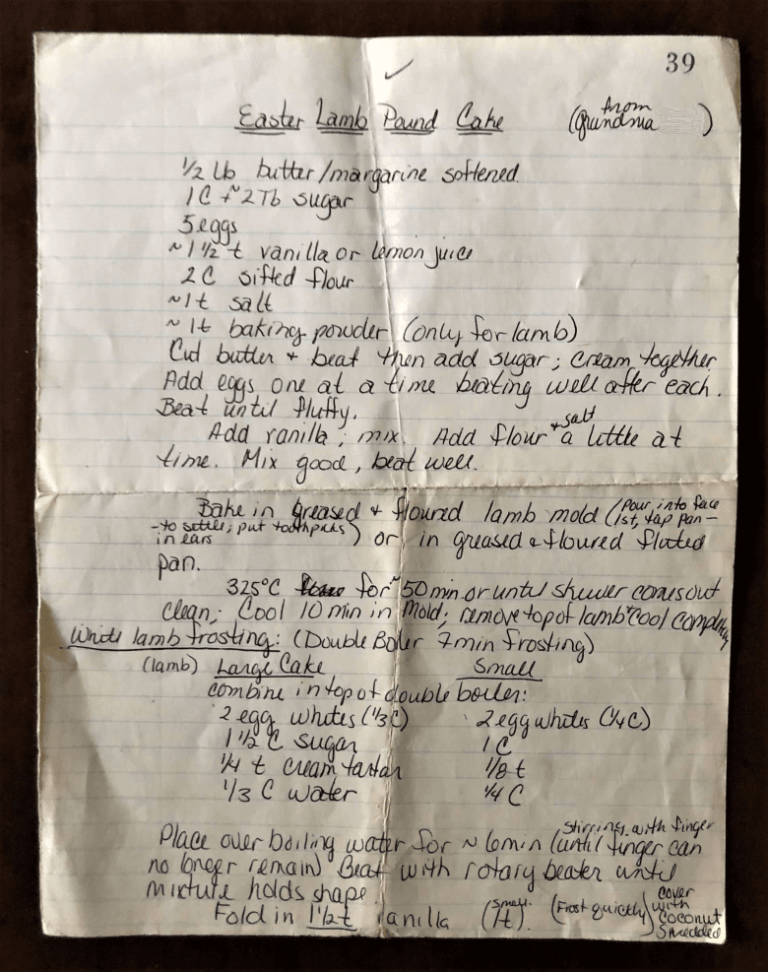 39
Easter Lamb Pound Cake (from Grandma )
1/2 Lb butter/margarine softened
1 C + ~2 Tb sugar
5 eggs
~ 1 1/2 t vanilla or lemon juice
2 C sifted flour
~1t salt
~ 1t baking powder (only for lamb)
Cut butter + beat then add sugar; cream together
Add eggs one at a time beating well after each.
Beat until fluffy.
Add vanilla; mix. Add flour + salt a little at
time. Mix good, beat well.
Bake in greased + floured lamb mold (Pour into face
1st, tap pan -
- to settle; put toothpicks
in ears) or in greased & floured fluted
pan.
325°C for ~50 min or until skewer comes out
clean; Cool 10 min in mold; remove top of lamb + cool completely
White lamb frosting: (Double Boiler 7 min frosting)
(lamb) Large Cake Small
combine in top of double boiler:
2 egg whites (1/3 C) 2 egg whites (1/4 C)
1 1/2 C sugar 1 C
1/4 t cream tartar 1/8 t
1/3 C water 1/4 C
Place over boiling water for ~ 6min (stirring with finger
until finger can
no longer remain) Beat with rotary beater until
mixture holds shape.
Fold in 1 1/2 t vanilla (small 1t). (Frost quickly) cover
with
coconut
shredded